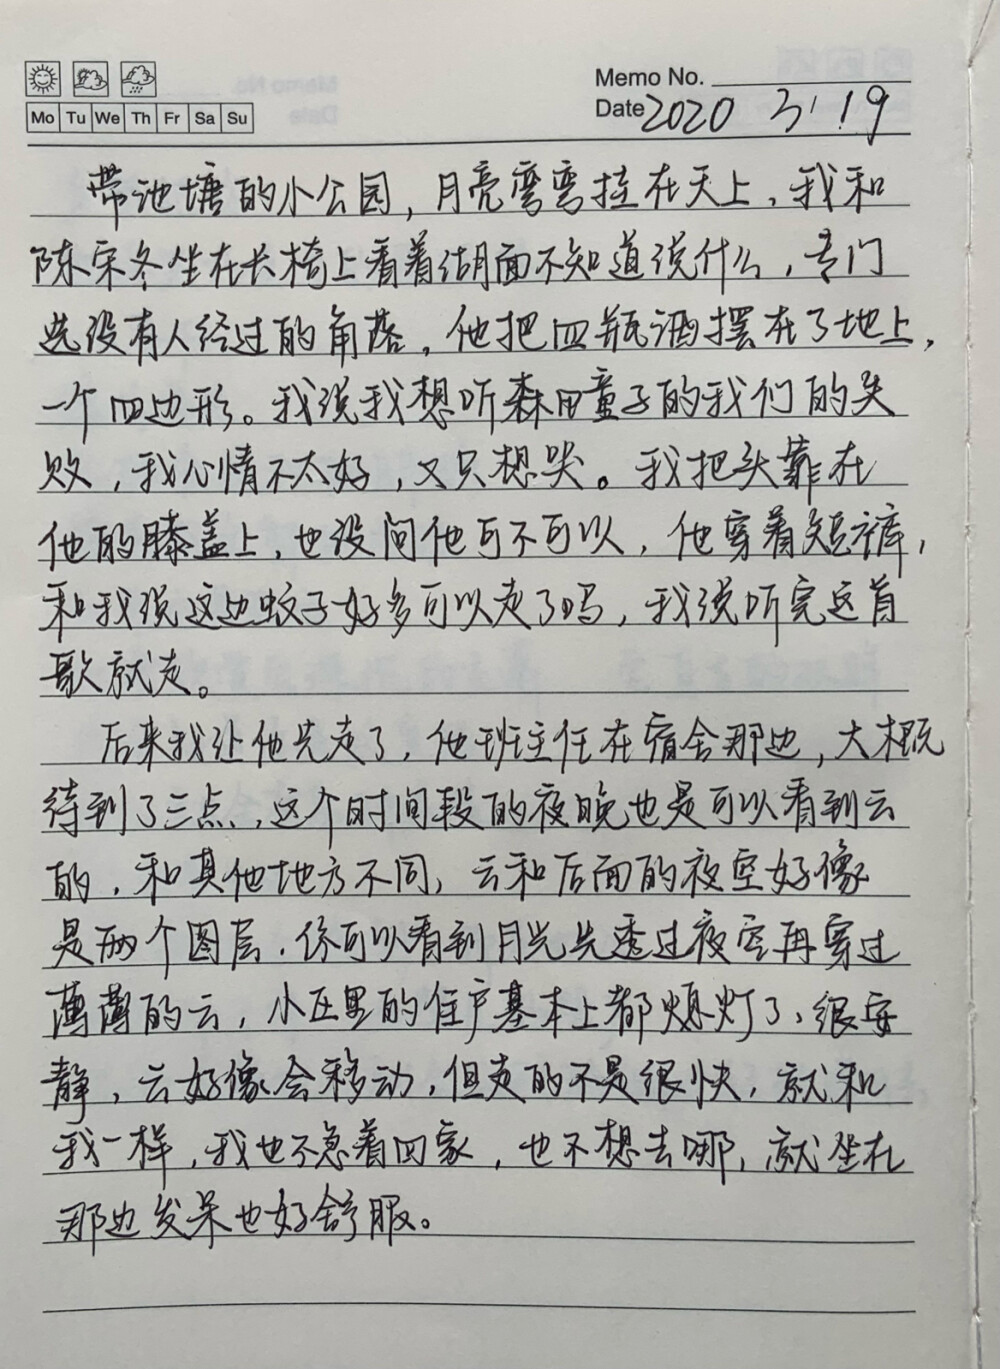 Memo No.
Mo Tu We Th Fr Sa Su
Date 2020 3/19
带池塘的小公园，月亮弯弯挂在天上，我和
陈宋冬坐在长椅上看着湖面不知道说什么，专门
选没有人经过的角落，他把四瓶酒摆在了地上，
一个四边形。我说我想听森田童子的我们的失
败，我心情不太好，又只想哭。我把头靠在
他的膝盖上，也没问他可不可以，他穿着短裤，
和我说这边蚊子好多可以走了吗，我说听完这首
歌就走。
后来我让他先走了，他班主任在宿舍那边，大概
待到了三点，这个时间段的夜晚也是可以看到云
的，和其他地方不同，云和后面的夜空好像
是两个图层，你可以看到月光先透过夜空再穿过
薄薄的云，小区里的住户基本上都熄灯了，很安
静，云好像会移动，但走的不是很快，就和
我一样，我也不急着回家，也不想去哪，就坐在
那边发呆也好舒服。